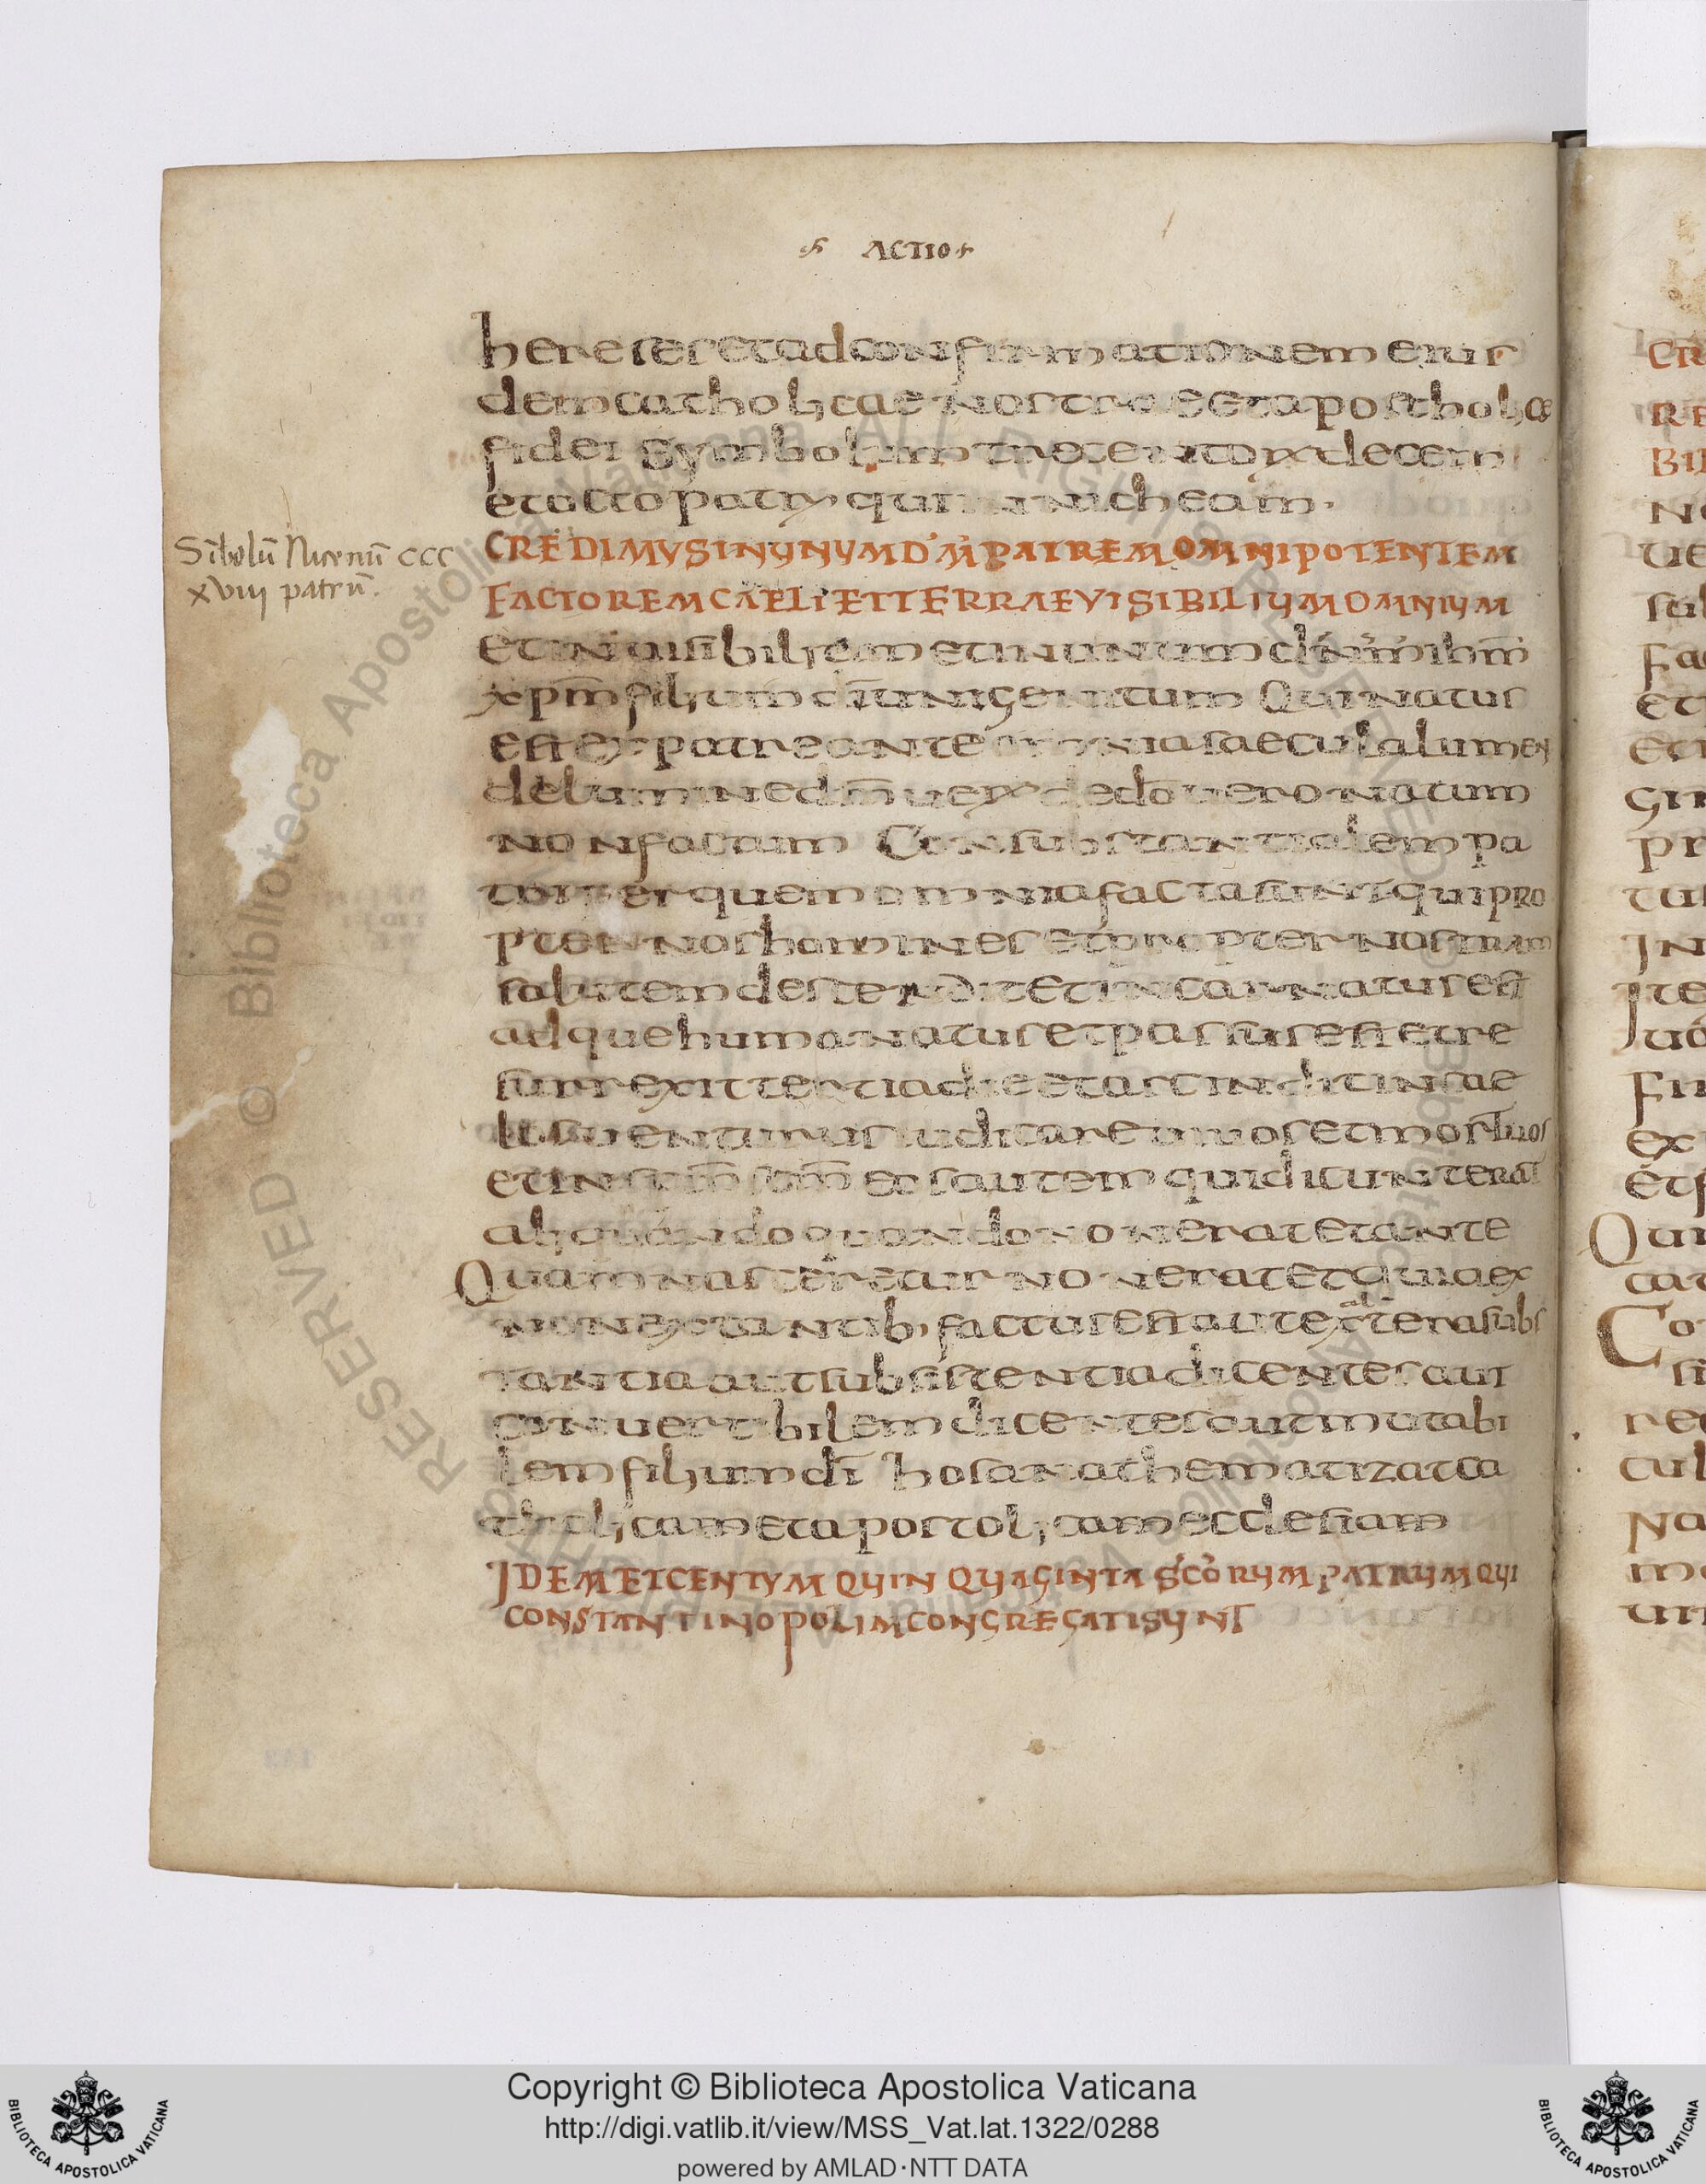 ACTIO
hereses et ad confirmationem eius
dem catholicae nostrae et aposthol,cae
fidei symbolum trecentorum decem
et octo patrum qui in nicheam.
Sībolū Nicenū CCC
XVIII patrū.
CREDIMUS IN UNUM DM PATREM OMNIPOTENTEM
FACTOREM CAELI ET TERRAE VISIBILIUM OMNIUM
et inuisibilium et in unum dnm ihm
xpm filium di unigenitum Qui natus
est ex patre ante omnia saecula lumen
de lumine dm uerum de do uero natum
non factum Consubstantialem pa
tri per quem omnia facta sunt qui pro
pter nos homines et propter nostram
salutem descendit et incarnatus est
adque humanatus et passus est et re
surrexit tertia die et ascindit in cae
lis uenturus iudicare uiuos et mortuos
et in spm scm eos autem qui dicunt erat
aliquando quando non erat et ante
Quam nasceretur non erat et quia ex
non extantib, factus est aut ex altera subs
tantia aut subsistentia dicentes aut
conuertibilem dicentes aut mutabi
lem filium di hos anathematizat ca
thol,cam et apostol,cam ecclesiam
IDEM ET CENTUM QUINQUAGINTA SCORUM PATRUM QUI
CONSTANTINOPOLIM CONGREGATI SUNT
Copyright © Biblioteca Apostolica Vaticana
http://digi.vatlib.it/view/MSS_Vat.lat.1322/0288
powered by AMLAD·NTT DATA
BIBLIOTECA APOSTOLICA VATICANA
BIBLIOTECA APOSTOLICA VATICANA